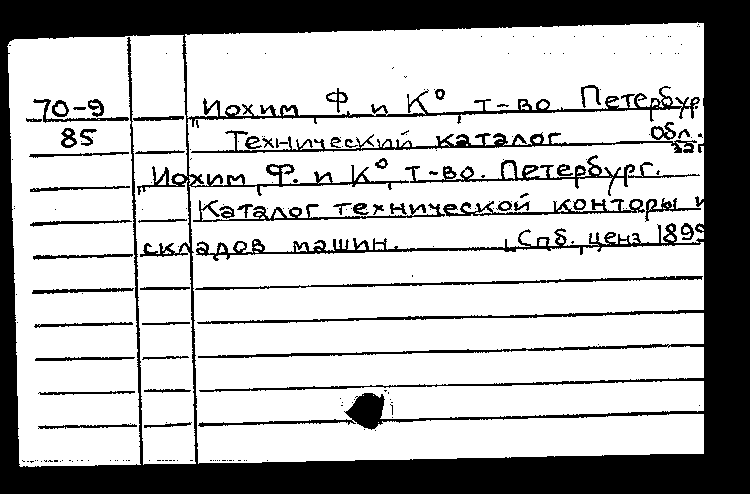 70-9 „Иохим, Ф. и К°, т-во. Петербур
85 Технический каталог. Обл. заг
„Иохим, Ф. и К°, т-во. Петербург.
Каталог технической конторы и
складов машин. [Спб., ценз. 1899